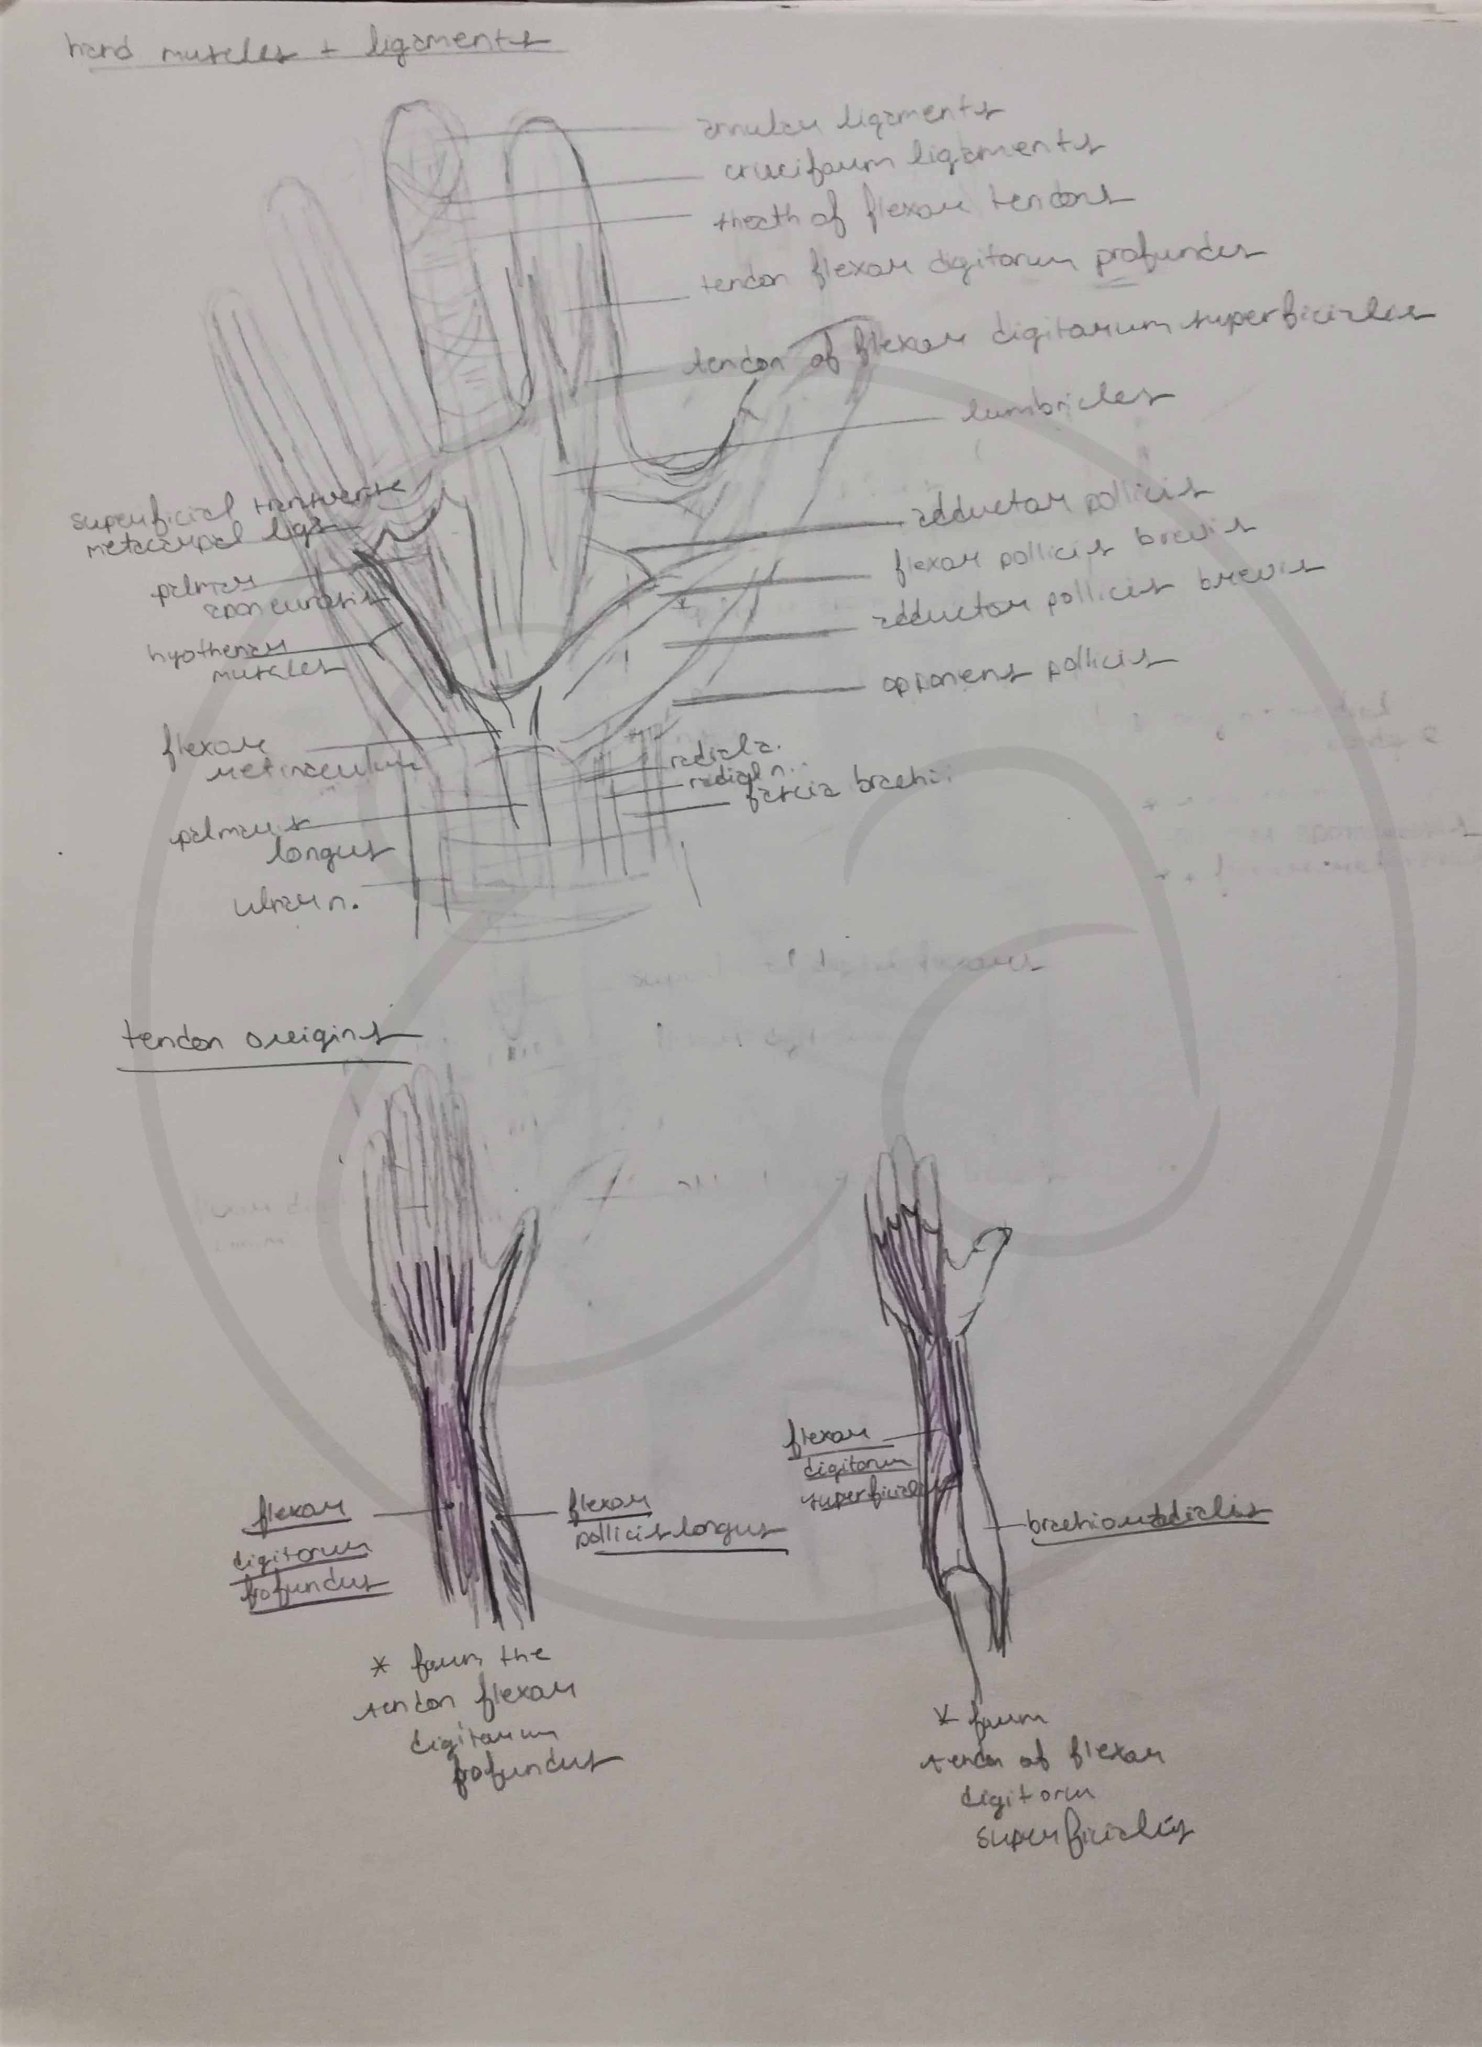 hand muscles + ligaments
annular ligaments
cruciform ligaments
sheath of flexor tendons
tendon flexor digitorum profundus
tendon of flexor digitorum superficiales
lumbricles
superficial transverse
metacarpal ligs
adductor pollicis
flexor pollicis brevis
palmar
aponeurosis
adductor pollicis brevis
hyothenar
muscles
opponens pollicis
flexor
retinaculum
radial a.
radial n.
fascia brachii
palmaris
longus
ulnar n.
tendon origins
flexor
digitorum
superficialis
flexor
digitorum
profundus
flexor
pollicis longus
brachioradialis
* form the
tendon flexor
digitorum
profundus
* form
tendon of flexor
digitorm
superficialis